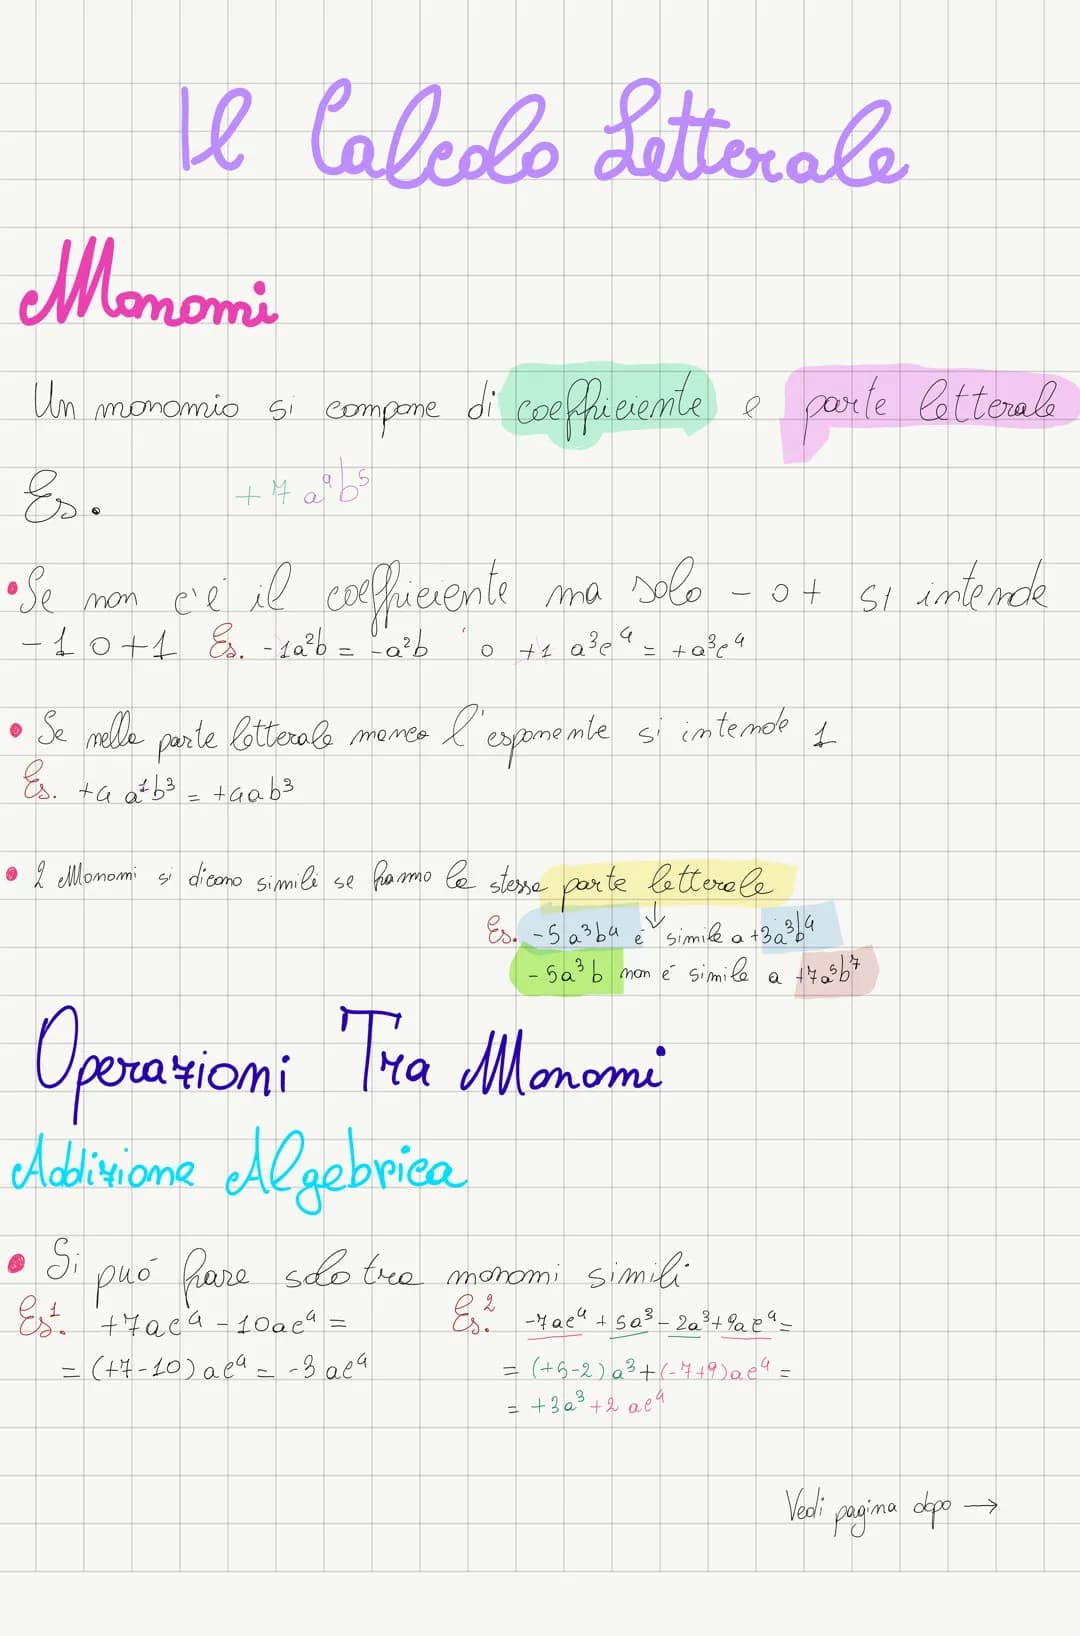 Il Calcolo Letterale
Monomi
Un monomio si compone di coefficiente e parte letterale
Es. +7a⁴b⁵
•Se non c'é il coefficiente ma solo - o + si intende
-1 o +1 Es. -1a²b = -a²b o +1 a³c⁴ = +a³c⁴
• Se nella parte letterale manca l'esponente si intende 1
Es. +4 a¹b³ = +4ab³
• 2 Monomi si dicono simili se hanno la stessa parte letterale
↓
Es. -5a³b⁴ é simile a +3a³b⁴
-5a³b non é simile a +7a⁵b⁷
Operazioni Tra Monomi
Addizione Algebrica
• Si puó fare solo tra monomi simili
Es.¹ +7ac⁴ - 10ac⁴ =
= (+7-10)ac⁴ = -3ac⁴
Es.² -7ac⁴ + 5a³ - 2a³ + 9ac⁴ =
= (+5-2)a³ + (-7+9)ac⁴ =
= +3a³ +2 ac⁴
Vedi pagina dopo →